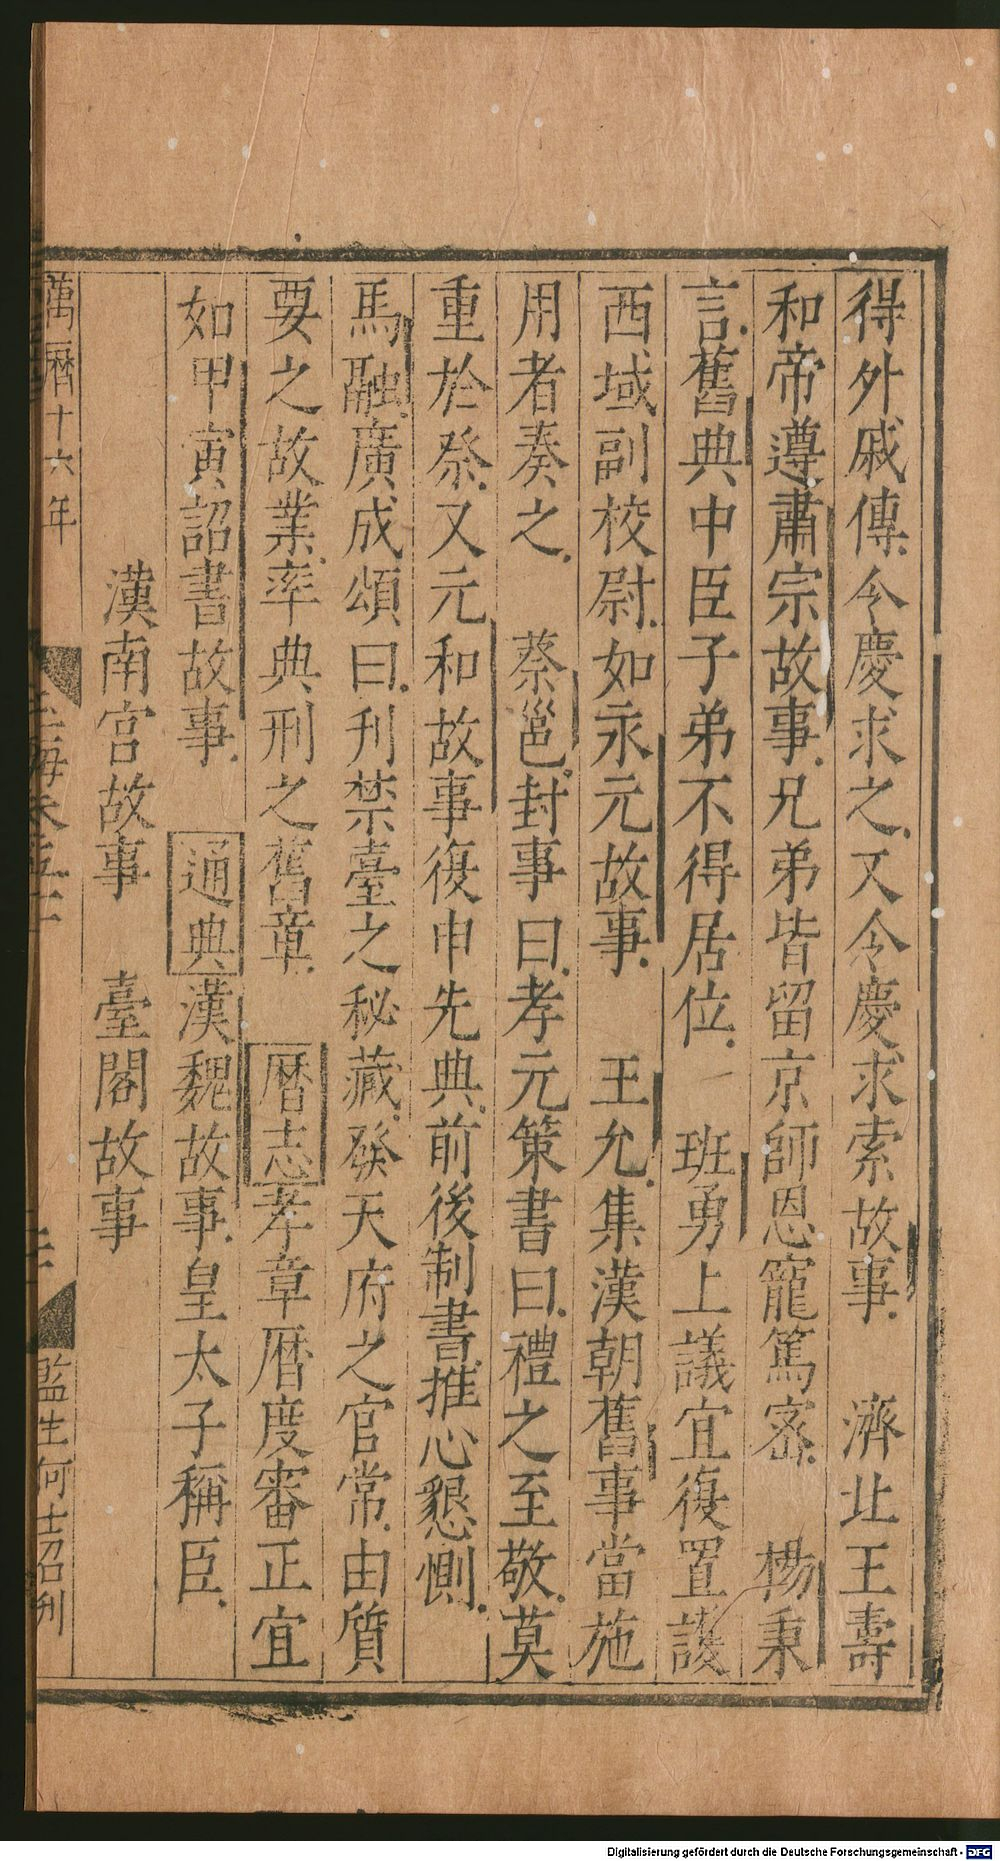 得外戚傳令慶求之又令慶求索故事　濟北王壽
和帝遵肅宗故事兄弟皆留京師恩寵篤密　楊秉
言舊典中臣子弟不得居位　班勇上議宜復置護
西域副校尉如永元故事　王允集漢朝舊事當施
用者奏之　蔡邕封事曰孝元策書曰禮之至敬莫
重於祭又元和故事復申先典前後制書推心懇惻
馬融廣成頌曰刋禁臺之秘藏發天府之官常由質
要之故業率典刑之舊章　曆志孝章曆度審正宜
如甲寅詔書故事　通典漢魏故事皇太子稱臣
漢南宮故事　臺閣故事
萬曆十六年
監生何士招刋
Digitalisierung gefördert durch die Deutsche Forschungsgemeinschaft - DFG